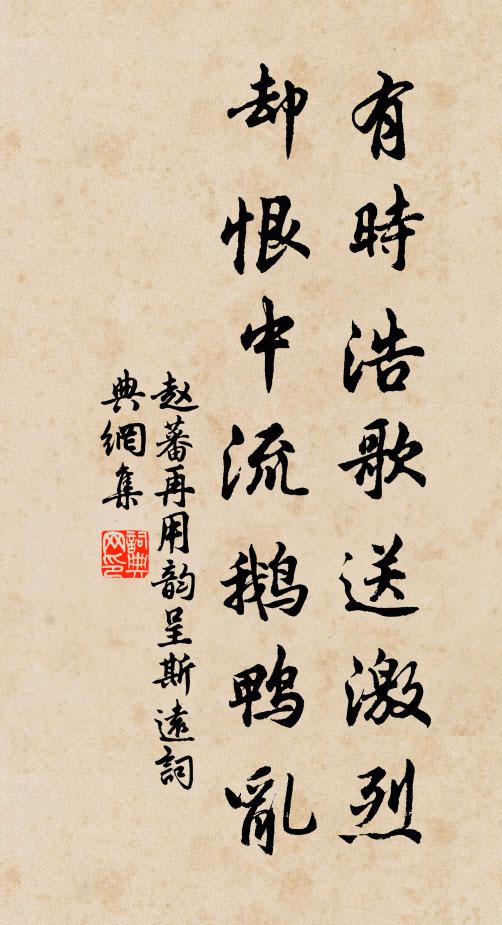 有時浩歌送激烈
却恨中流鵝鴨亂
赵蕃再用韵呈斯遠詞
典網集
詞典
网印